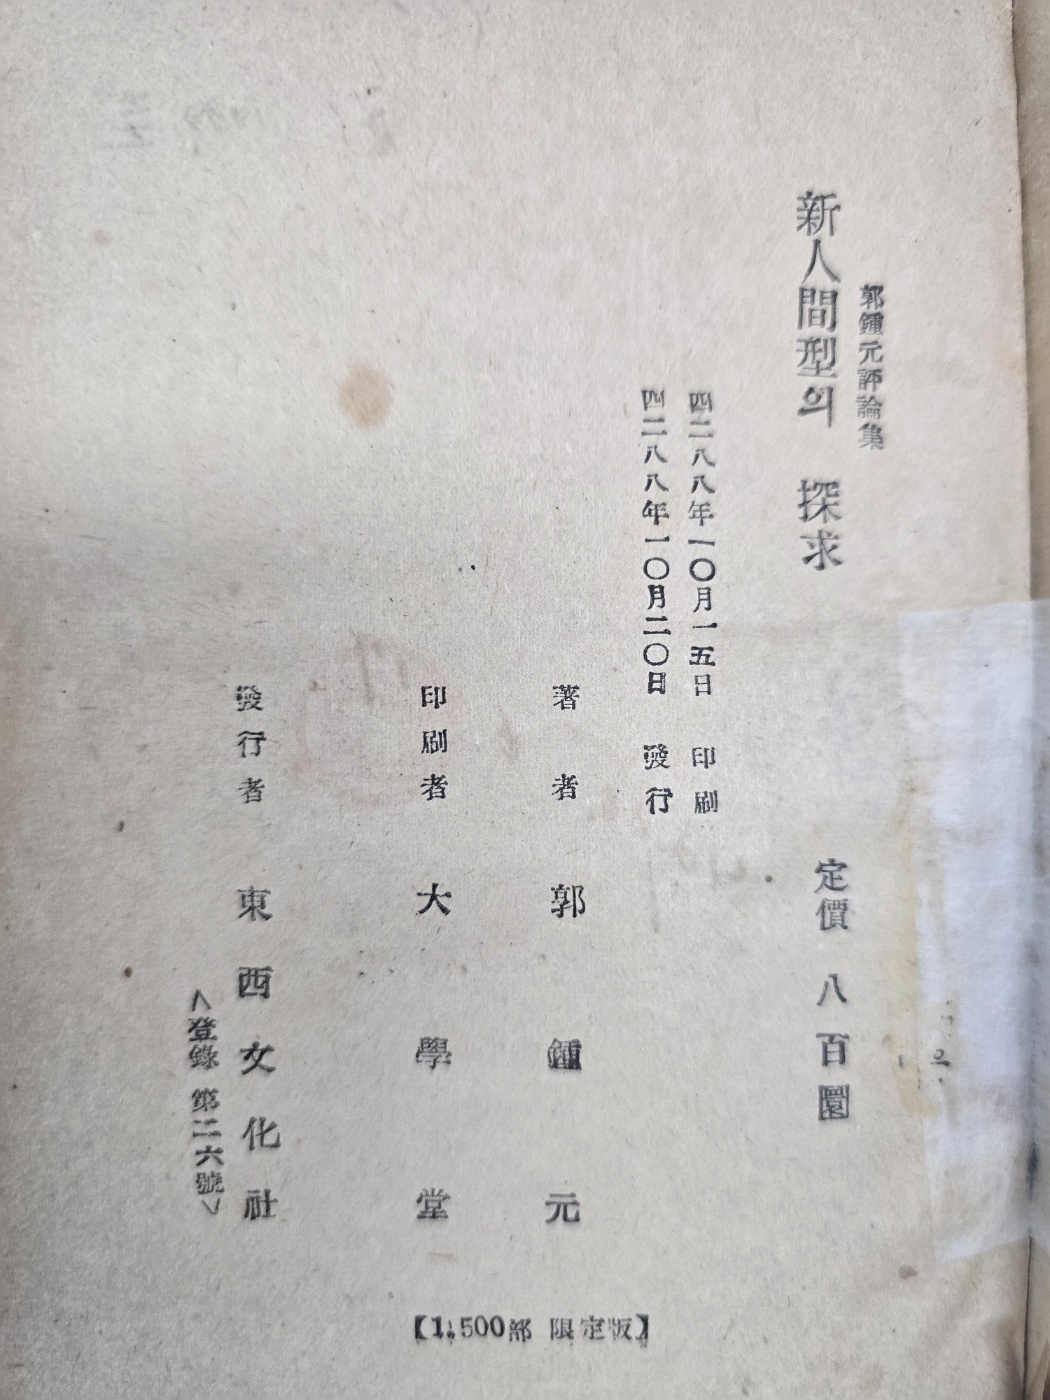 郭鍾元評論集
新人間型의 探求
定價 八百圜
四二八八年一〇月一五日 印刷
四二八八年一〇月二〇日 發行
著者 郭鍾元
印刷者 大學堂
發行者 東西文化社
<登錄 第二六號>
【1,500部 限定版】